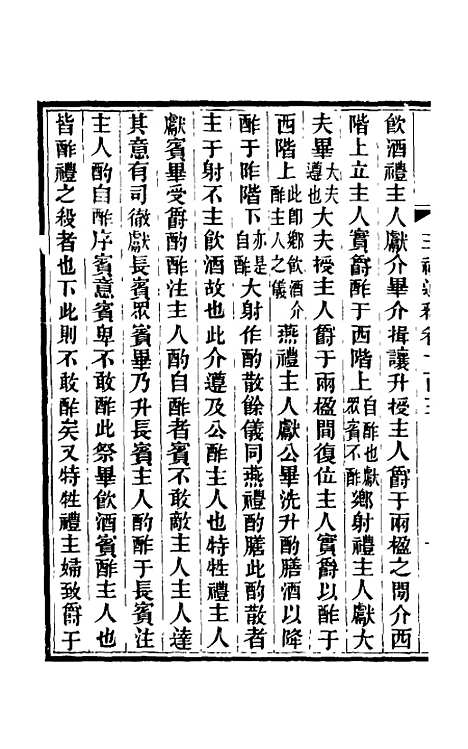 飲酒禮主人獻介畢介揖讓升授主人爵于兩楹之間介西
階上立主人實爵酢于西階上自酢也獻眾賓不酢鄉射禮主人獻大
夫畢大夫遵也大夫授主人爵于兩楹間復位主人實爵以酢于
西階上此即鄉飲酒介酢主人之儀燕禮主人獻公畢洗升酌膳酒以降
酢于阼階下亦是自酢大射作酌散餘儀同燕禮酌膳此酌散者
主于射不主飲酒故也此介遵及公酢主人也特牲禮主人
獻賓畢受爵酌酢注主人酌自酢者賓不敢敵主人主人達
其意有司徹獻長賓眾賓畢乃升長賓主人酌酢于長賓注
主人酌自酢序賓意賓卑不敢酢此祭畢飲酒賓酢主人也
皆酢禮之殺者也下此則不敢酢矣又特牲禮主婦致爵于